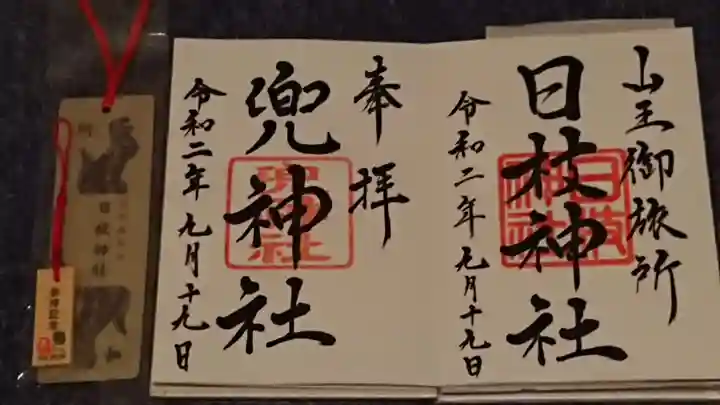 山王御旅所
日枝神社
令和二年九月十九日
日枝神社
奉拝
兜神社
令和二年九月十九日
兜神社
日枝神社
参拝記念